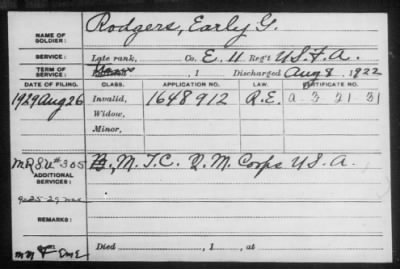 NAME OF SOLDIER: Rodgers, Early G.
SERVICE: Late rank, Co. E. 11 Reg't U.S.F.A.
TERM OF SERVICE: , 1 Discharged Aug 8, 1922
DATE OF FILING. CLASS. APPLICATION NO. LAW. CERTIFICATE NO.
1929 Aug 26 Invalid, 1648912 R.E. A 3 21 31
Widow,
Minor,
M.R.S.U #305 M.T.C. Q.M. Corps U.S.A.
ADDITIONAL SERVICES:
REMARKS:
Died , 1 , at